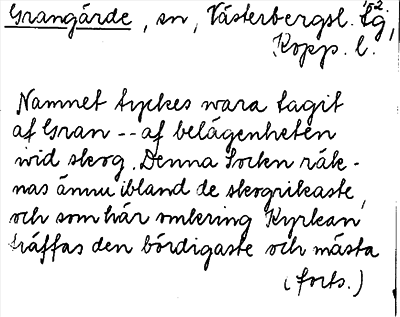 Grangärde, sn, Västerbergsl. fg,
Kopp. l.
Namnet tyckes wara tagit
af Gran -- af belägenheten
wid skog. Denna Socken räk-
nas ännu ibland de skogrikaste,
och som här omkring Kyrkan
träffas den bördigaste och mästa
(forts.)